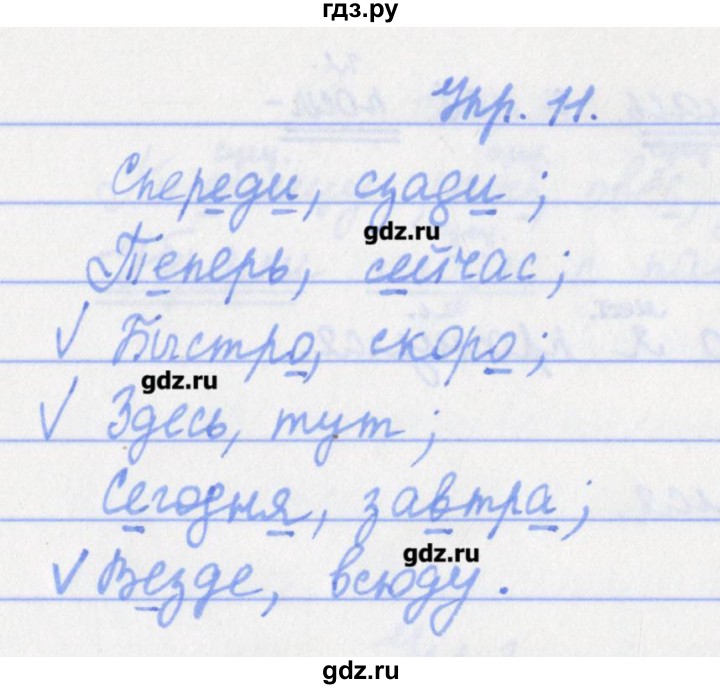 гдз.ру
Упр. 11.
Спереди, сзади;
gdz.ru
Теперь, сейчас;
✓ Быстро, скоро;
gdz.ru
✓ Здесь, тут;
Сегодня, завтра;
gdz.ru
✓ Везде, всюду.
gdz.ru